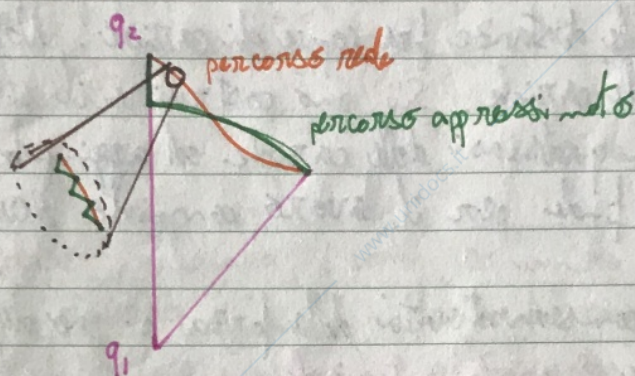 q2
percorso reale
percorso approssimato
q1